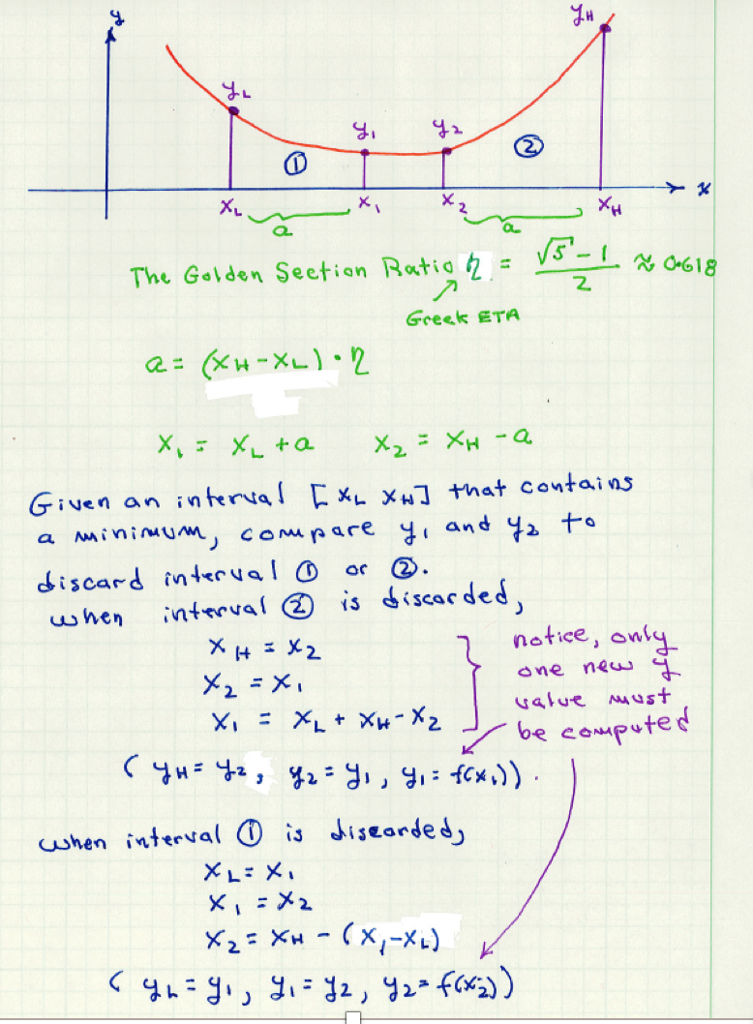 y
y_H
y_L
y_1 y_2
① ②
x
x_L x_1 x_2 x_H
a a
The Golden Section Ratio η = (√5 - 1)/2 ≈ 0.618
Greek ETA
a = (x_H - x_L) · η
x_1 = x_L + a x_2 = x_H - a
Given an interval [x_L x_H] that contains
a minimum, compare y_1 and y_2 to
discard interval ① or ②.
when interval ② is discarded,
x_H = x_2
x_2 = x_1
x_1 = x_L + x_H - x_2
notice, only
one new y
value must
be computed
(y_H = y_2, y_2 = y_1, y_1 = f(x_1)).
when interval ① is discarded,
x_L = x_1
x_1 = x_2
x_2 = x_H - (x_1 - x_L)
(y_L = y_1, y_1 = y_2, y_2 = f(x_2))